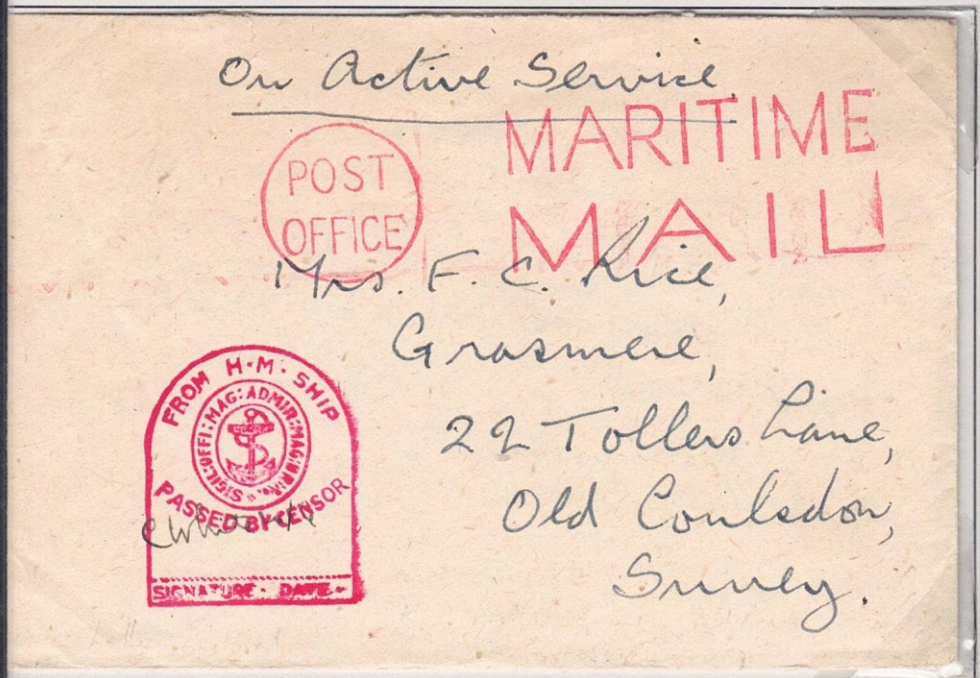 On Active Service
POST
OFFICE
MARITIME
MAIL
Mrs. F. C. Rice,
Grasmere,
22 Tollers Lane,
Old Coulsdon,
Surrey.
FROM H·M· SHIP
SIGIL:OFFI:MAG:ADMIR:MAG
PASSED BY CENSOR
SIGNATURE - DATE -